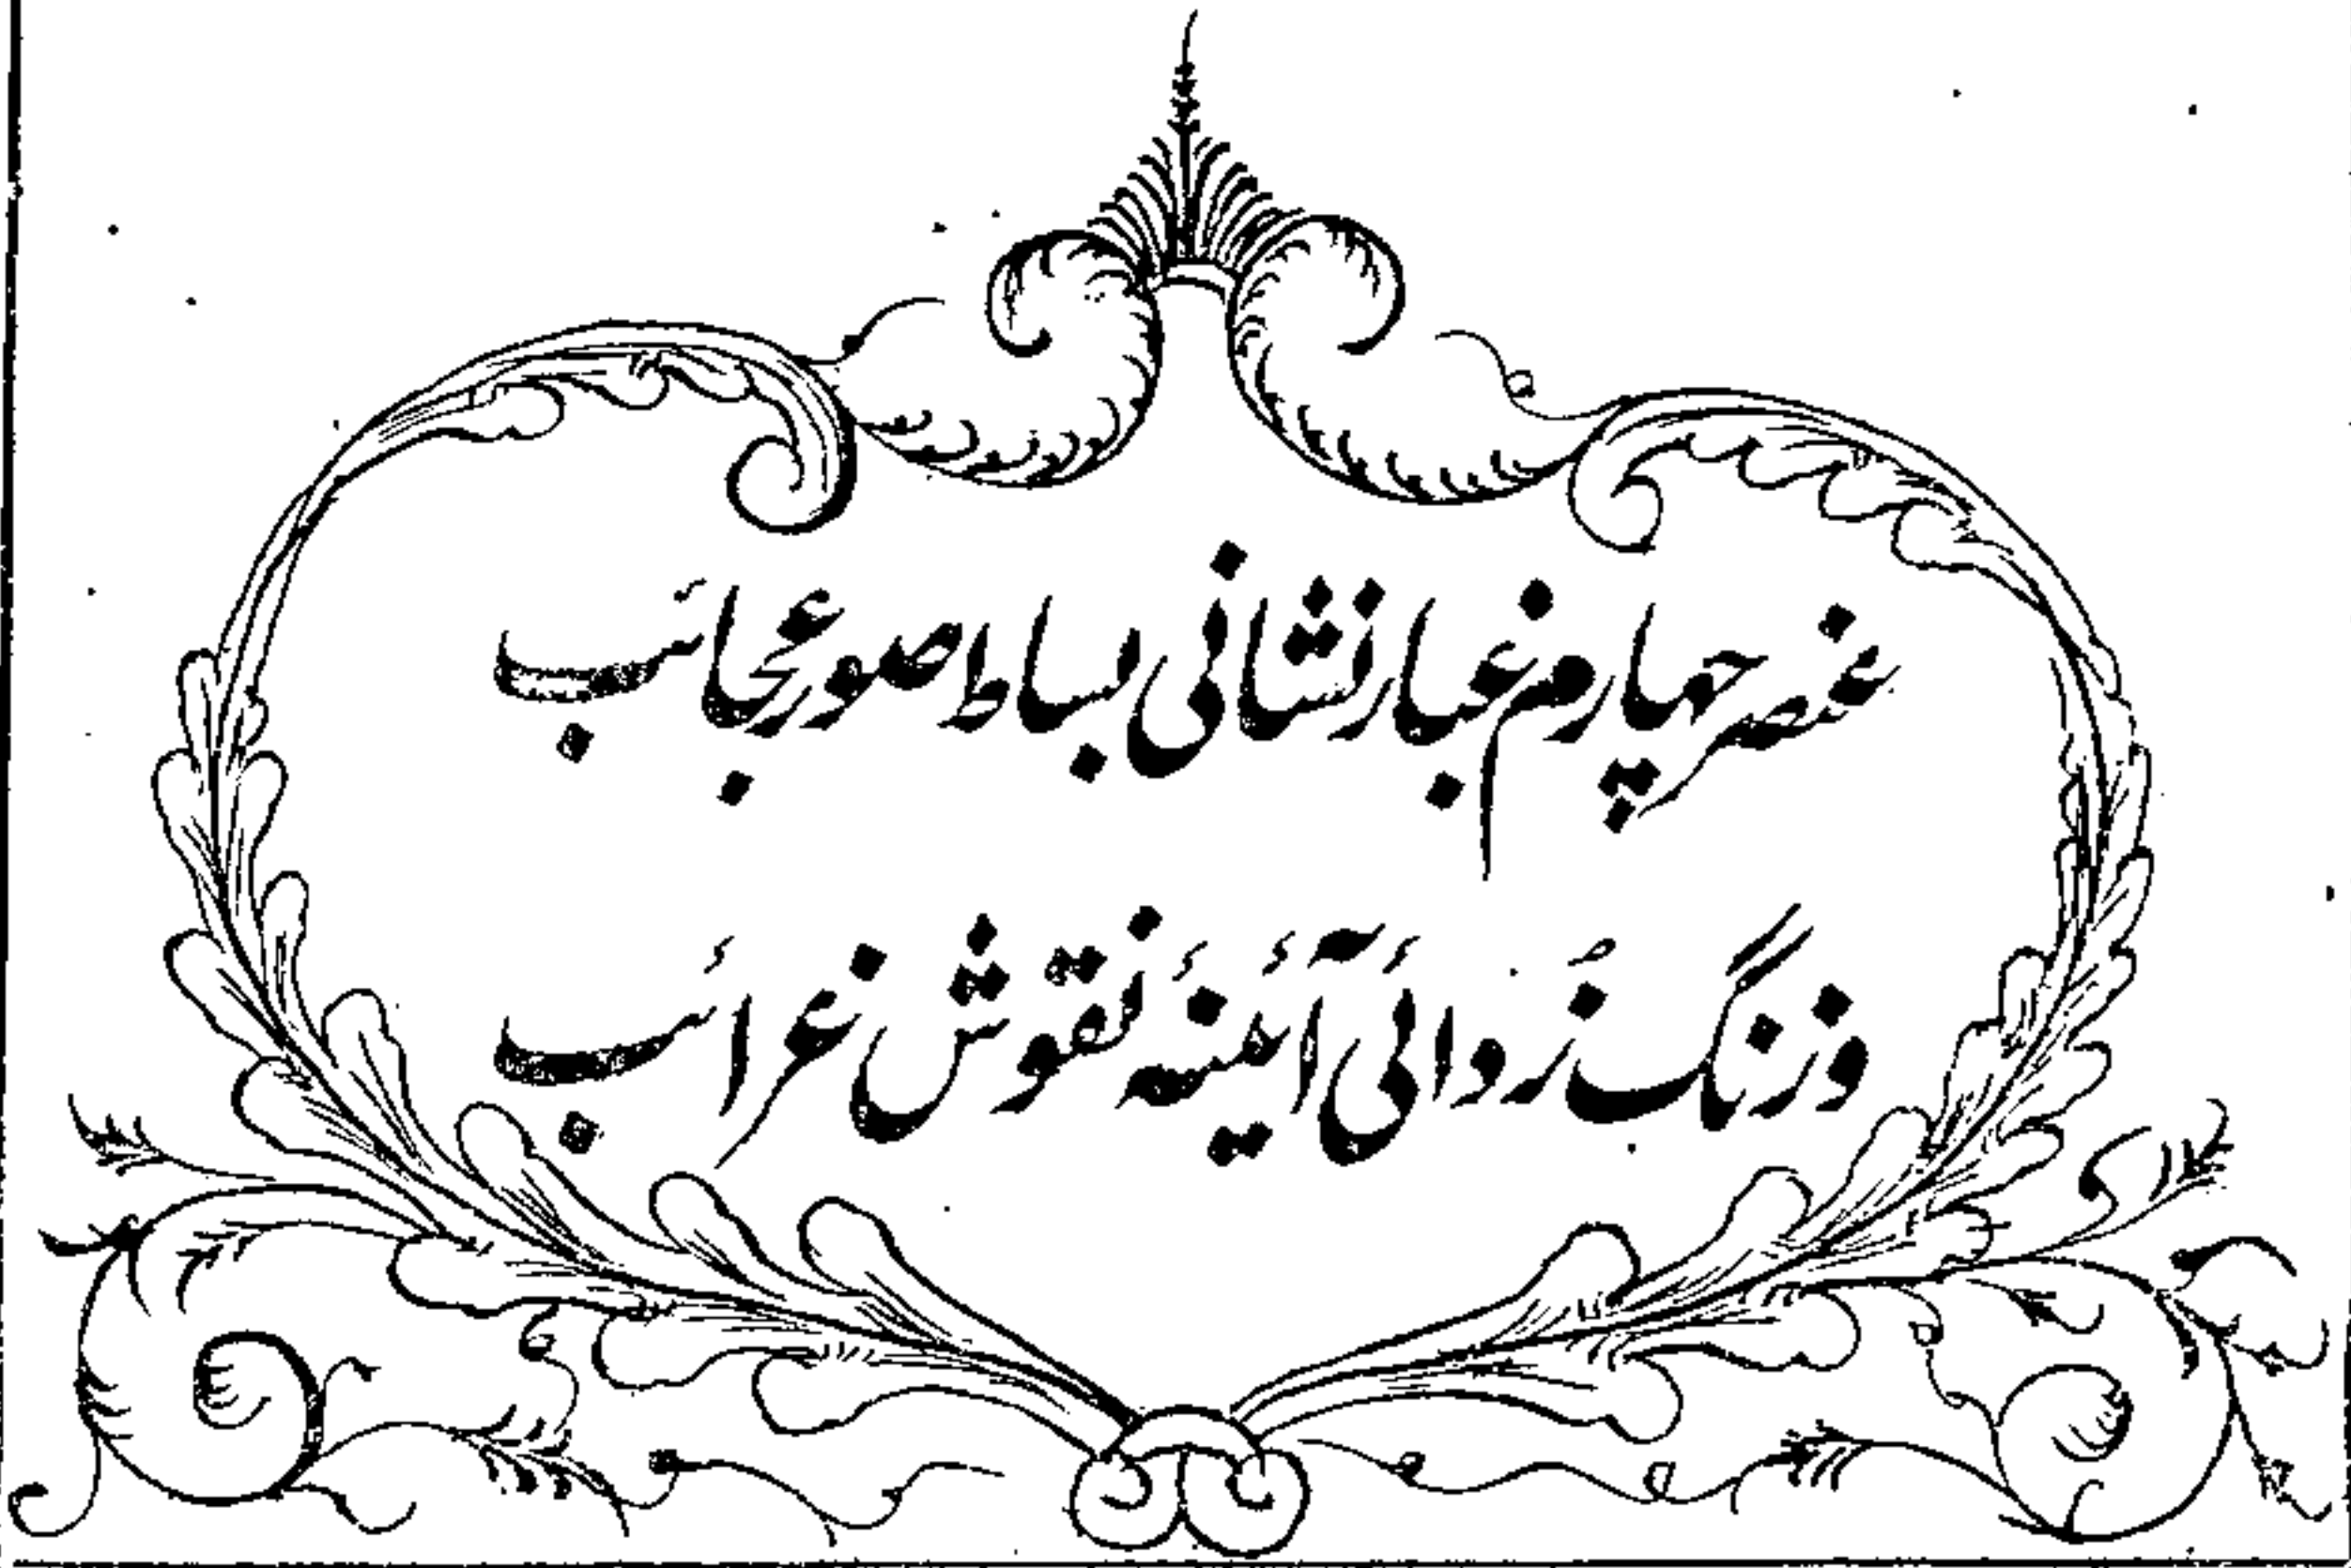 عنصر چهارم غبار فشانی بساط صور عجائب
و زنگ زُدوائی آئینهٔ نقوش غرائب